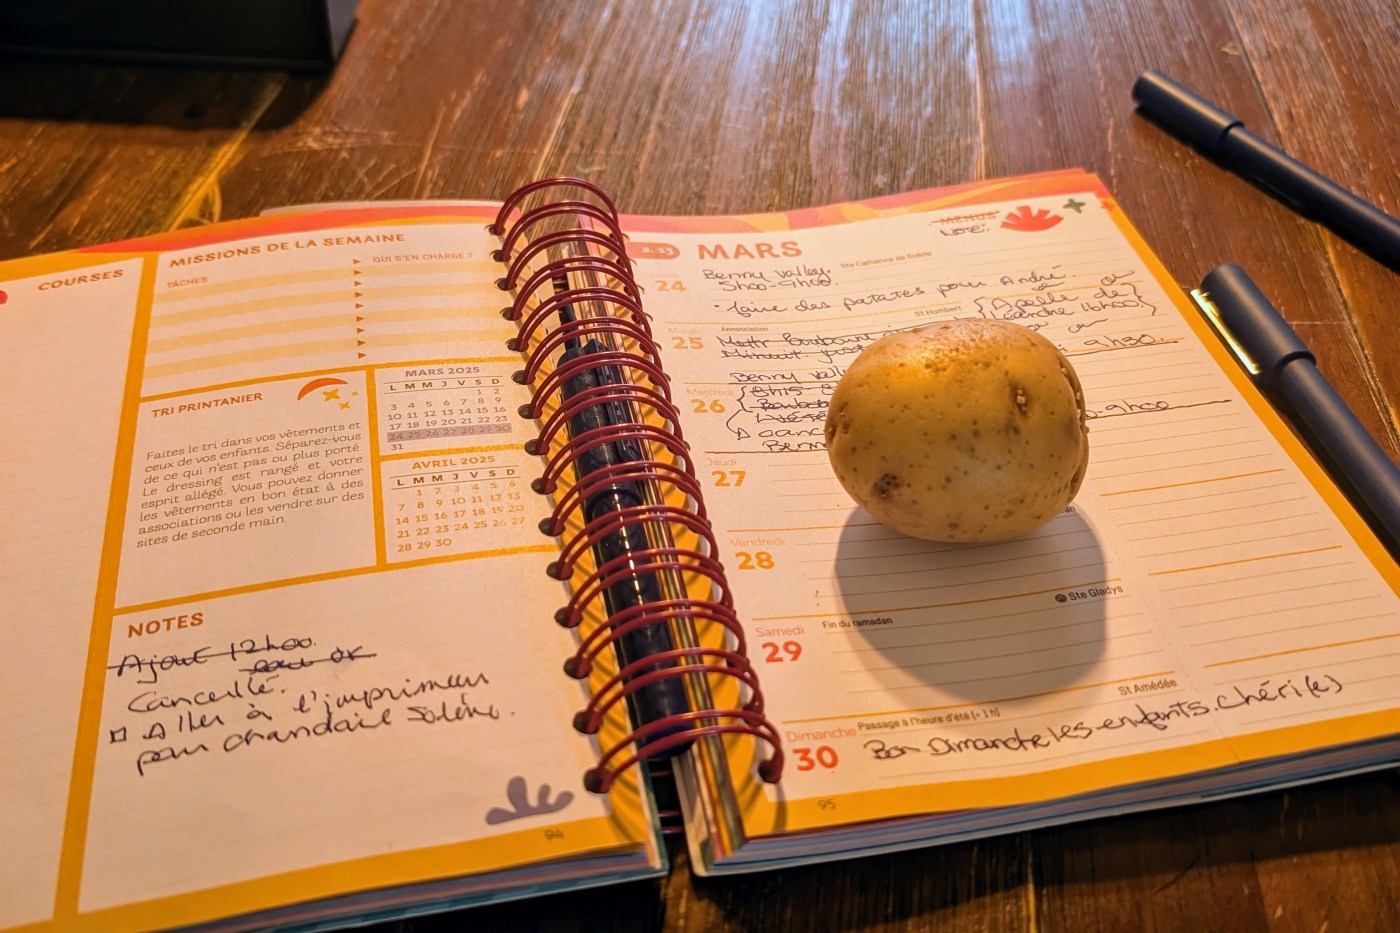 COURSES
MISSIONS DE LA SEMAINE
TÂCHES
QUI S'EN CHARGE ?
TRI PRINTANIER
Faites le tri dans vos vêtements et
ceux de vos enfants. Séparez-vous
de ce qui n'est pas ou plus porté.
Le dressing est rangé et votre
esprit allégé. Vous pouvez donner
les vêtements en bon état à des
associations ou les vendre sur des
sites de seconde main.
MARS 2025
L M M J V S D
1 2
3 4 5 6 7 8 9
10 11 12 13 14 15 16
17 18 19 20 21 22 23
24 25 26 27 28 29 30
31
AVRIL 2025
L M M J V S D
1 2 3 4 5 6
7 8 9 10 11 12 13
14 15 16 17 18 19 20
21 22 23 24 25 26 27
28 29 30
NOTES
Ajout 12h00
OK
Cancellé.
Aller à l'imprimeur
pour chandail Solène.
94
S. 13
MARS
MENUS
Note:
24
Ste Catherine de Suède
Benny Valley.
5h00-9h00.
faire des patates pour André.
Mardi
25
Annonciation
St Humbert
Appelle de
Léandre 16h00
9h30.
Benny Vall
Mercredi
26
9h00
Benn
Jeudi
27
Vendredi
28
Ste Gladys
Samedi
29
Fin du ramadan
St Amédée
Dimanche
30
Passage à l'heure d'été (+ 1 h)
Bon Dimanche les enfants. Chéri(e)
95